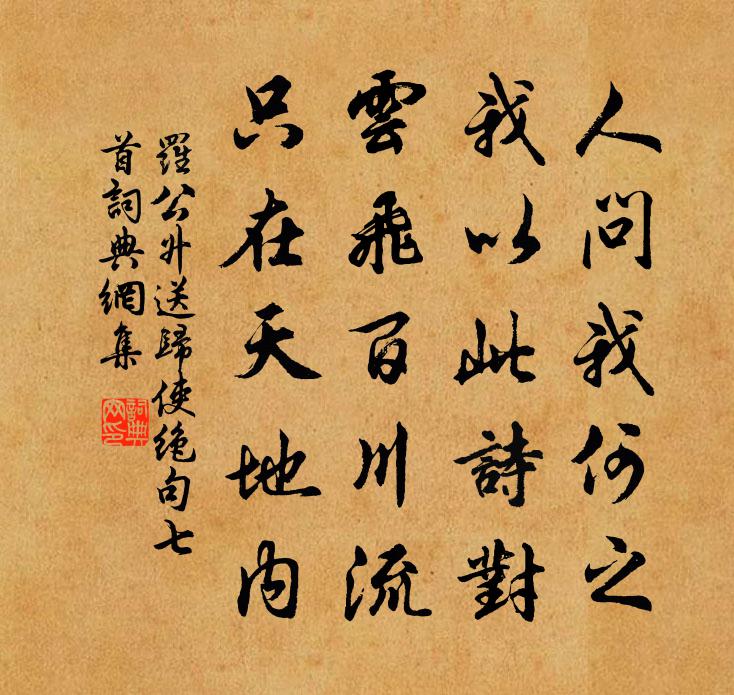 人問我何之
我以此詩對
雲飛百川流
只在天地内
羅公外送歸使絶句七
首詞典網集
詞典
网印